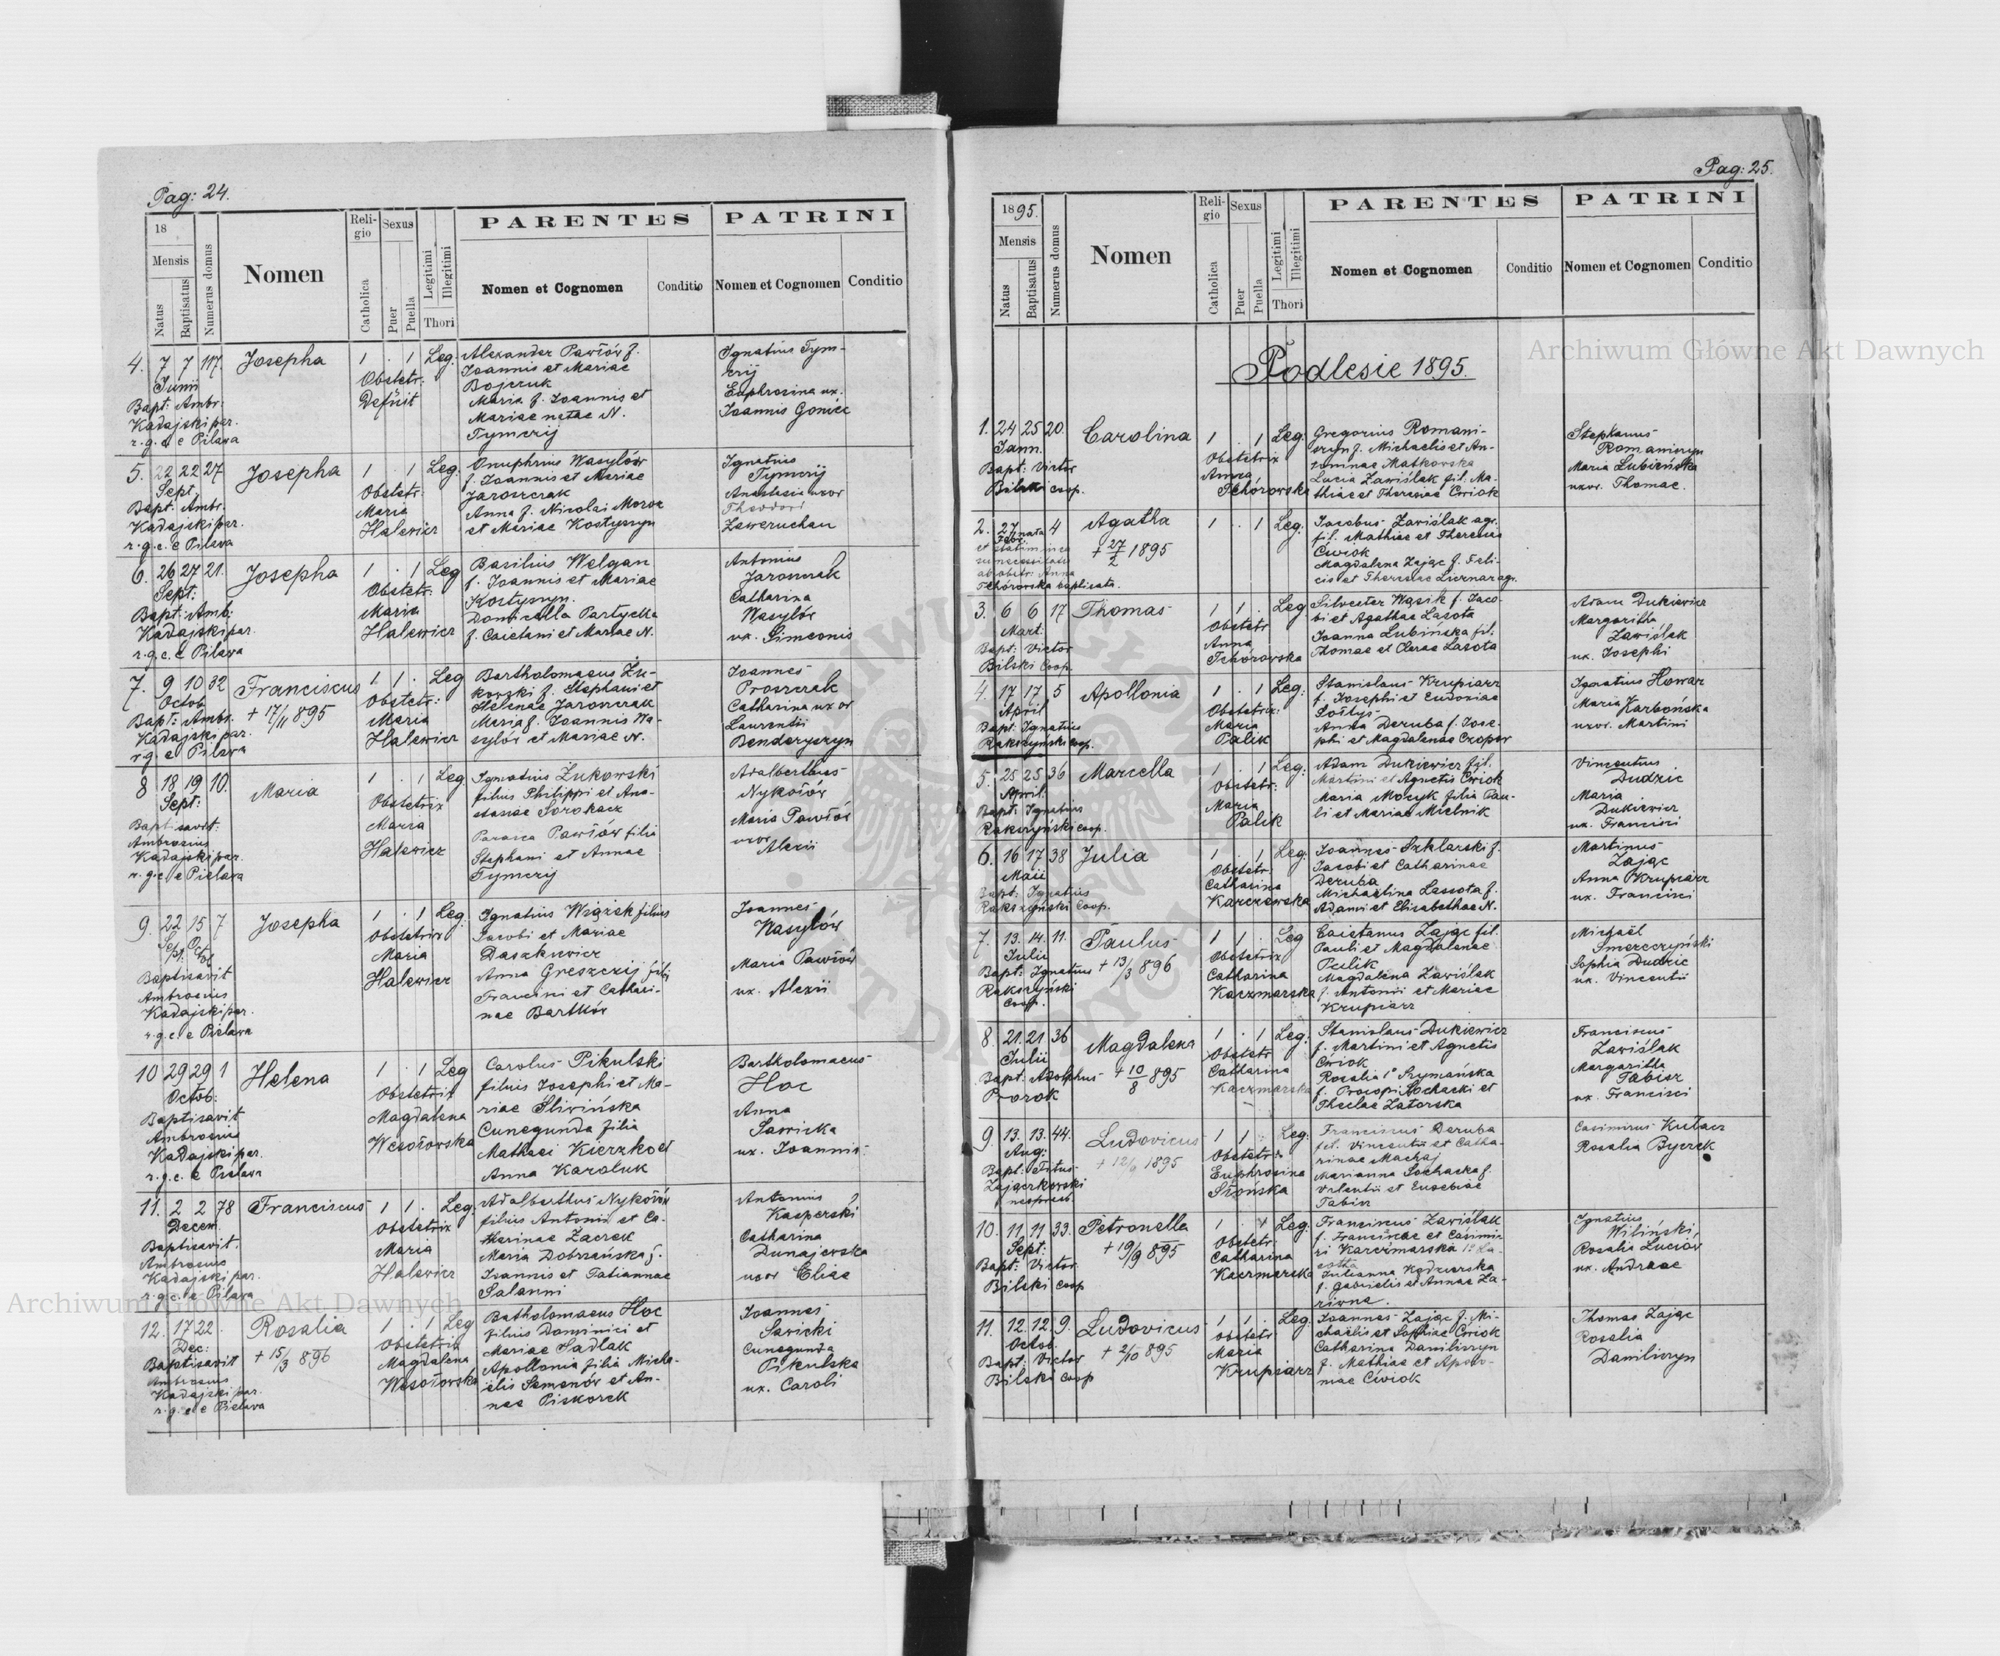 Pag: 24.
18
Mensis
Natus
Baptisatus
Numerus domus
Nomen
Religio
Catholica
Sexus
Puer
Puella
Legitimi
Illegitimi
Thori
PARENTES
Nomen et Cognomen
Conditio
PATRINI
Nomen et Cognomen
Conditio
4. 7 7 117
Junii
Bapt: Ambr:
Kadajski par.
r. g. c. e Pilava
Josepha
1 . 1 Leg.
Obstetr:
Deficit
Alexander Pawłów f.
Joannis et Mariae
Bojczuk
Maria f. Joannis et
Mariae natae N.
Tymczij
Ignatius Tym-
czij
Euphrosina ux.
Joannis Goniec
5. 22 22 27
Sept.
Bapt: Ambr.
Kadajski par.
r. g. c. e Pilava
Josepha
1 . 1 Leg.
Obstetr:
Maria
Halewicz
Onuphrius Wasylów
f. Joannis et Mariae
Jaroszczak
Anna f. Nicolai Moroz
et Mariae Kostyszyn
Ignatius
Tymczij
Anastasia uxor
Theodori
Zaweruchan
6. 26 27 21.
Sept:
Bapt: Amb:
Kadajski par.
r. g. c. e Pilava
Josepha
1 . 1 Leg
Obstetr:
Maria
Halewicz
Basilius Welgan
f. Joannis et Mariae
Kostyszyn.
Domicella Partycka
f. Caietani et Mariae N.
Antonius
Jaroszczak
Catharina
Wasylów
ux. Simeonis
7. 9 10 32
Octob
Bapt: Ambr.
Kadajski par.
r. g. e Pilava
Franciscus
+ 17/11 895
1 1 . Leg
Obstetr:
Maria
Halewicz
Bartholomaeus Żu-
kowski f. Stephani et
Helenae Jaroszczak
Maria f. Joannis Wa-
sylów et Mariae N.
Joannes
Proszczak
Catharina uxor
Laurentii
Benderyszyn
8 18 19 10.
Sept:
Baptisavit:
Ambrosius
Kadajski par.
r. g. c. e Pielava
Maria
1 . 1 Leg
Obstetrix
Maria
Halewicz
Ignatius Żukowski
filius Philippi et Ana-
stasiae Sorokacz
Parasca Pawłów filia
Stephani et Annae
Tymczij
Adalbertus
Nykołów
Maria Pawłów
uxor
Alexii
9. 22 15 7
Sept. Octob
Baptisavit
Ambrosius
Kadajski par.
r. g. c. e Pielava
Josepha
1 . 1 Leg.
Obstetrix
Maria
Halewicz
Ignatius Wiązik filius
Jacobi et Mariae
Daszkiewicz
Anna Greszczij filia
Francisci et Cathari-
nae Bartków
Joannes
Wasylów
Maria Pawłów
ux. Alexii
10 29 29 1
Octob:
Baptisavit
Ambrosius
Kadajski par.
r. g. c. e Pielava
Helena
1 . 1 Leg
Obstetrix
Magdalena
Wesołowska
Carolus Pikulski
filius Josephi et Ma-
riae Śliwińska
Cunegunda filia
Mathaei Kieczko et
Anna Karoluk
Bartholomaeus
Hoc
Anna
Sawicka
ux. Joannis
11. 2 2 78
Decem.
Baptisavit.
Ambrosius
Kadajski par.
r. g. c. e Pilava
Franciscus
1 1 . Leg.
Obstetrix
Maria
Halewicz
Adalberttus Nykołów
filius Antonii et Ca-
tharinae Zacrek
Maria Dobrzańska f.
Joannis et Tatiannae
Salanni
Antonius
Kasperski
Catharina
Dunajewska
uxor Eliae
12. 17 22 .
Dec:
Baptisavit
Ambrosius
Kadajski par.
r. g. c. e Pielava
Rosalia
+ 15/3 896
1 . 1 Leg
Obstetrix
Magdalena
Wesołowska
Batholomaeus Hoc
filius Dominici et
Mariae Sadlak
Apollonia filia Micha-
elis Semenów et An-
nae Piskorek
Joannes
Sawicki
Cunegunda
Pikulska
ux. Caroli
Pag: 25.
1895.
Mensis
Natus
Baptisatus
Numerus domus
Nomen
Religio
Catholica
Sexus
Puer
Puella
Legitimi
Illegitimi
Thori
PARENTES
Nomen et Cognomen
Conditio
PATRINI
Nomen et Cognomen
Conditio
Podlesie 1895.
1. 24 25 20
Jann.
Bapt: Victor
Bilski coop.
Carolina
1 . 1 Leg.
Obstetrix
Anna
Tchórowska
Gregorius Romani-
szyn f. Michaelis et An-
toninae Matkowska
Lucia Zawiślak fil. Ma-
thiae et Theresiae Ćwiok
Stephanus
Romaniszyn
Maria Lubieńska
uxor. Thomae.
2. 27 nata 4
Febr.
et statim in ca
su necessitatis
ab obstetr: Anna
Tchórowska baptisata.
Agatha
+ 27/2 1895
1 . 1 Leg.
Jacobus Zawiślak agr.
fil. Mathiae et Theresiae
Ćwiok
Magdalena Zając f. Feli-
cis et Theresiae Liernar agr.
3. 6 6 17
Mart:
Bapt: Victor
Bilski Coop.
Thomas
1 1 . Leg
Obstetr.
Anna
Tchórowska
Silvester Wąsik f. Jaco-
bi et Agathae Lasota
Joanna Lubińska fil.
Thomae et Clarae Lasota
Adam Dukiewicz
Margaritha
Zawiślak
ux. Josephi
4. 17 17 5
April
Bapt. Ignatius
Rakszyński coop.
Apollonia
1 . 1 Leg:
Obstetrix:
Maria
Palik
Stanislaus Krupiarz
f. Josephi et Eudoxiae
Sołtys
Anna Deruba f. Jose-
phi et Magdalenae Czopor
Ignatius Howar
Maria Karbońska
uxor. Martini
5. 25 25 36
April.
Bapt: Ignatius
Rakszyński coop.
Marcella
1 . 1 Leg:
Obstetr:
Maria
Palik
Adam Dukiewicz fil.
Martini et Agnetis Ćwiok
Maria Mocyk filia Pau-
li et Mariae Mielnik
Vincentius
Dudzic
Maria
Dukiewicz
ux. Francisci
6. 16 17 38
Maii
Bapt: Ignatius
Rakszyński Coop.
Julia
1 . 1 Leg.
Obstetr.
Catharina
Karczewska
Joannes Szklarski f.
Jacobi et Catharinae
Deruba
Michaelina Lassota f.
Adami et Elisabethae N.
Martinus
Zając
Anna Krupiarz
ux. Francisci
7. 13. 14. 11.
Julii
Bapt: Ignatius
Rakszyński
Coop.
Paulus
+ 13/3 896
1 1 . Leg
Obstetrix
Catharina
Kaczmarska
Caietanus Zając fil.
Pauli et Magdalenae
Palik
Magdalena Zawiślak
f. Antonii et Mariae
Krupiarz
Michaël
Smereczyński
Sophia Dudzic
ux. Vincentii
8. 21. 21 36
Julii
Bapt: Adolphus
Porok
Magdalena
+ 10/8 895
1 . 1 Leg:
Obstetr:
Catharina
Kaczmarska
Stanislaus Dukiewicz
f. Martini et Agnetis
Ćwiok
Rosalia 1° Szymańska
f. Procopi Sochacki et
Theclae Zatorska
Franciscus
Zawiślak
Margaritha
Tabisz
ux. Francisci
9. 13. 13. 44.
Aug:
Bapt: Titus
Zajączkowski
neopresb.
Ludovicus
1895
1 1 . Leg:
Obstetrix
Euphrosina
Słońska
Franciscus Deruba
fil. Vincentii et Catha-
rinae Machaj
Marianna Sochacka f.
Valentii et Eusebiae
Tabisz
Casimirus Kułacz
Rosalia Byczek
10. 11 11 33.
Sept:
Bapt: Victor
Bilski coop
Petronella
+ 19/9 895
1 . 1 Leg.
Obstetr:
Catharina
Kaczmarska
Franciscus Zawiślak
f. Franciscae et Casimi-
ri Karczmarska
Julianna Kędzierska
f. Gabrielis et Annae Za-
riwna.
Ignatius
Wiliński
Rosalia Luciów
ux. Andreae
11. 12. 12. 9.
Octob:
Bapt: Victor
Bilski coop
Ludovicus
+ 2/10 895
1 1 . Leg.
Obstetr:
Maria
Krupiarz
Joannes Zając f. Mi-
chaelis et Sophiae Ćwiok
Catharina Daniliszyn
f. Mathiae et Apolo-
niae Ćwiok
Thomas Zając
Rosalia
Daniliszyn
Archiwum Główne Akt Dawnych
Archiwum Główne Akt Dawnych